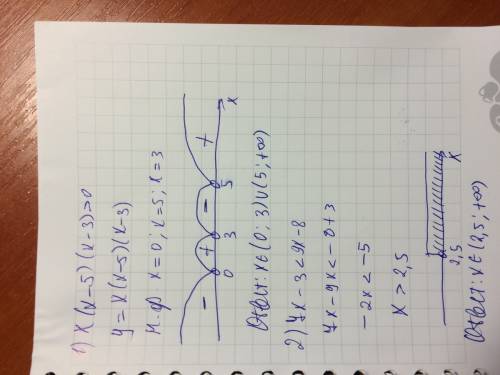 1) x(x-5)(x-3)>0
y=x(x-5)(x-3)
н.ф. x=0; x=5; x=3
- + - +
0 3 5 x
Ответ: x∈(0; 3)∪(5; +∞)
2) 7x-3<9x-8
7x-9x<-8+3
-2x<-5
x>2,5
2,5 x
Ответ: x∈(2,5; +∞)